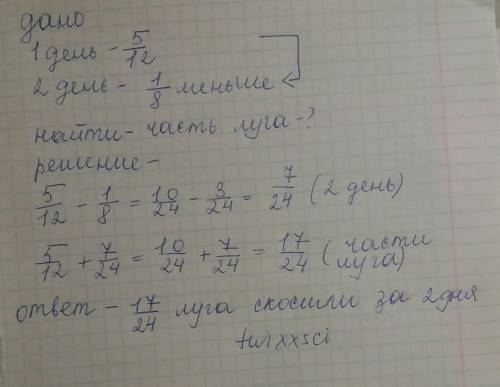 дано
1 день - 5/12
2 день - 1/8 меньше
найти - часть луга - ?
решение -
5/12 - 1/8 = 10/24 - 3/24 = 7/24 (2 день)
5/12 + 7/24 = 10/24 + 7/24 = 17/24 (части луга)
ответ - 17/24 луга скосили за 2 дня
twixxsci